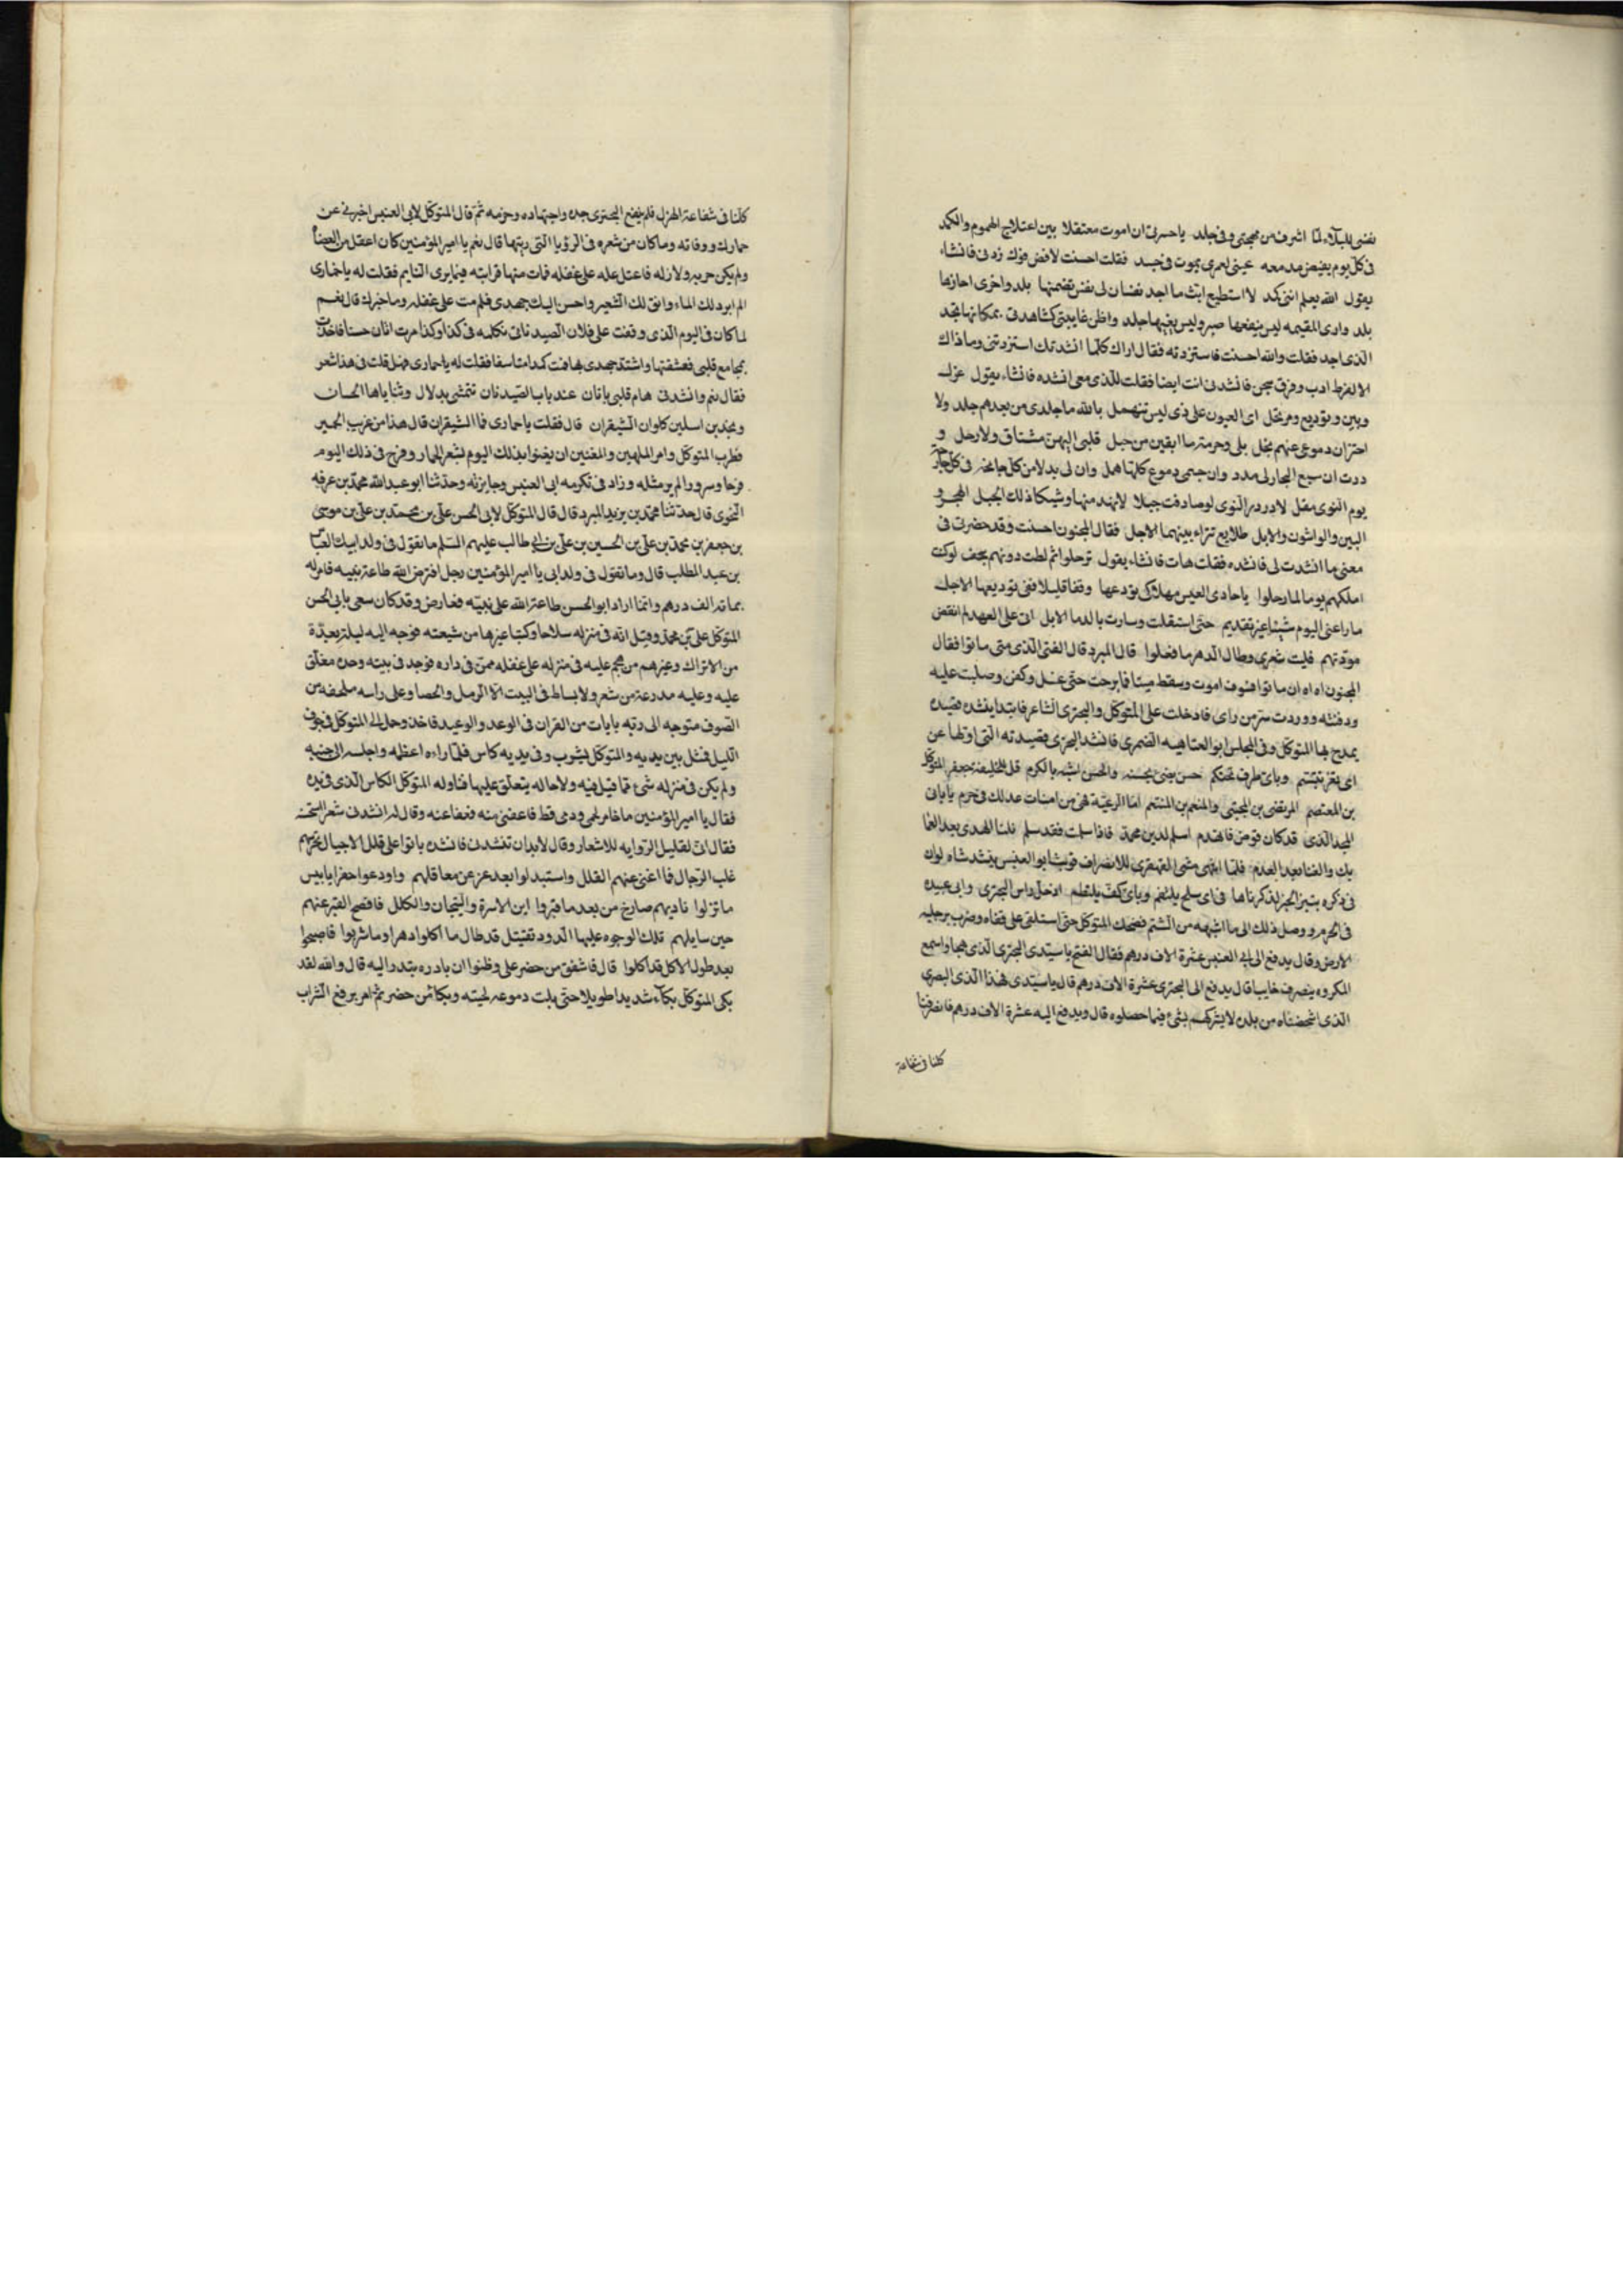 نفسى للبلاء لما اشرف من مهجتى وفى جلد ياحسرتى ان اموت معتقلا بين اعتلاج الهموم والكمد
فى كل يوم يفيض مدمعه عينى لعمرى يموت فى جسد فقلت احسنت لا فض فوك زدنى فانشاء
يقول الله يعلم اننى كمد لا استطيع ابث ما اجد نفسان لى نفس تضمنها بلد واخرى احازها
بلد وارى المقيمه ليس ينفعها صبر وليس بجلد واظن غايبتى كشاهدتى بمكانها تجد
الذى اجد فقلت والله احسنت فاستزدته فقال اراك كلما انشدتك استزدتنى وما ذاك
الا لفرط ادب وفراق شجن فانشدنى انت ايضا فقلت للذى معى انشده فانشاء يقول عزل
وبين وتوديع ومرتحل اى العيون على ذى ليس تنهمل بالله ما جلدى من بعدهم جلد ولا
اختزان دموعى عنهم بخل بلى وحرمة ما ابقين من خبل قلبى اليهن مشتاق ولا رحل و
ددت ان سبع البحار لى مدد وان جسمى دموع كلها همل وان لى بدلا من كل جانحة فى كل جارحة
يوم النوى مقل لا در در النوى لو صادفت جبلا لانهد منها وشيكا ذلك الجبل الهجر و
البين والواشون والابل طلايع تراء بينهما الاجل فقال المجنون احسنت وقد حضرنى فى
معنى ما انشدت لى فانشده فقلت هات فانشاء يقول ترحلوا ثم لطت دونهم سجف لو كنت
املكهم يوما لما رحلوا ياحادى العيس مهلا كى نودعها وقفا قليلا ففى توديعها الاجل
ما راعنى اليوم شيئا غير تقديم حتى استقلت وسارت بالدما الابل انى على العهد لم انقض
مودتهم فليت شعرى وطال الدهر ما فعلوا قال المبرد قال الفتى الذى معى ماتوا فقال
المجنون اه اه ان ماتوا فسوف اموت وسقط ميتا فما برحت حتى غسل وكفن وصليت عليه
ودفنته ووردت سر من راى فادخلت على المتوكل والبحترى الشاعر فابتدا ينشده قصيده
يمدح بها المتوكل وفى المجلس ابو العتاهيه الضمرى فانشد البحترى قصيدته التى اولها عن
اى ثغر تبتسم وباى طرف تحتكم حسن يضى بحسنه والحسن اشبه بالكرم قل للخليفة جعفر المتوكل
بن المعتصم المرتضى بن المجتبى والمنعم بن المنتقم اما الرعيه فهى من امنات عدلك فى حرم يابانى
المجد الذى قد كان قوض فانهدم اسلم لدين محمد فاذا سلمت فقد سلم نلنا الهدى بعد العما
بك والغنا بعد العدم فلما انتهى مشى القهقرى للانصراف فوثب ابو العنبس ينشد شاه لولا
فى ذكره بتميز الخبر لذكرناها فى اى سلح يلتقم وباى كف يلتطم ادخل راس البحترى وابى عبيده
فى الحرم ووصل ذلك الى ما اشبهه من الشتم فضحك المتوكل حتى استلقى على قفاه وضرب برجليه
الارض وقال يدفع الى ابى العنبس عشرة الاف درهم فقال الفتح ياسيدى البحترى الذى هجا واسمع
المكروه ينصرف خايبا قال يدفع الى البحترى عشرة الاف درهم قال ياسيدى فهذا الذى البصرى
الذى اشخصناه من بلده لا يشركهم بشئ فيما حصلوه قال ويدفع اليه عشرة الاف درهم فانصرفنا
كلنا فى شفاعة
كلنا فى شفاعة الهزل فلم ينفع البحترى جده واجتهاده وحزمه ثم قال المتوكل لابى العنبس اخبرنى عن
حمارك ووفاته وما كان من شعره فى الرؤيا التى رايتها قال نعم يا امير المؤمنين كان اعقل من القضاة
ولم يكن جريه ولا زله فاعتل عله على غفله فمات منها فرايته فيما يرى النايم فقلت له ياحمارى
الم ابرد لك الماء وانق لك الشعير واحسن اليك جهدى فلم مت على غفله وما خبرك قال نعم
لما كان فى اليوم الذى وقفت على فلان الصيدنانى تكلمه فى كذا وكذا مرت اتان حسنا فاخذت
بمجامع قلبى فعشقتها واشتد جهدى بها فمت كمدا متاسفا فقلت له ياحمارى فهل قلت فى هذا شعر
فقال نعم وانشدنى هام قلبى باتان عند باب الصيدنان تتمشى بدلال وثناياها الحسان
وبخدين اسيلين كلوان الشيقران قال فقلت ياحمارى فما الشيقران قال هذا من غريب الحمير
فطرب المتوكل وامر الملهين والمغنين ان يغنوا بذلك اليوم بشعر الحمار وفرح فى ذلك اليوم
فرحا وسرورا لم ير مثله وزاد فى تكرمه ابى العنبس وجايزته وحدثنا ابو عبد الله محمد بن عرفه
النحوى قال حدثنا محمد بن يزيد المبرد قال قال المتوكل لابى الحسن على بن محمد بن على بن موسى
بن جعفر بن محمد بن على بن الحسين بن على بن ابى طالب عليهم السلم ما تقول فى ولد ابيك العباس
بن عبد المطلب قال وما تقول فى ولد ابى يا امير المؤمنين رجل افترض الله طاعة بنيه فامر له
بماته الف درهم وانما اراد ابو الحسن طاعة الله على نبيته فعارض وقد كان سعى بابى الحسن
المتوكل على بن محمد وقيل انه فى منزله سلاحا وكتبا غيرها من شيعته فوجه اليه ليلة بعدة
من الاتراك وغيرهم من هجم عليه فى منزله على غفله ممن فى داره فوجد فى بيته وحده مغلق
عليه وعليه مدرعة من شعر ولا بساط فى البيت الا الرمل والحصا وعلى راسه ملحفه من
الصوف متوجه الى ربه بايات من القران فى الوعد والوعيد فاخذ وحمل الى المتوكل فى جوف
الليل فمثل بين يديه والمتوكل يشرب وفى يديه كاس فلما راءه اعظمه واجلسه الى جنبه
ولم يكن فى منزله شئ مما قيل فيه ولا حاله يتعلق عليها فناوله المتوكل الكاس الذى فى يده
فقال يا امير المؤمنين ما خامر لحمى ودمى قط فاعفنى منه فعفا عنه وقال له انشدنى شعر استحسنه
فقال انى لقليل الروايه للاشعار وقال لابد ان تنشدنى فانشده باتوا على قلل الاجبال تحرسهم
غلب الرجال فما اغنى عنهم القلل واستبدلوا بعد عز عن معاقلهم واودعوا حفرا يابيس
ما نزلوا ناديهم صارخ من بعد ما قبروا اين الاسرة والتيجان والكلل فافصح القبر عنهم
حين سايلهم تلك الوجوه عليها الدود تقتتل قد طال ما اكلوا دهرا وما شربوا فاصبحوا
بعد طول الاكل قد اكلوا قال فاشفق من حضر على وظنوا ان بادره بتدر اليه قال والله لقد
بكى المتوكل بكاء شديدا طويلا حتى بلت دموعه لحيته وبكا من حضر ثم امر برفع الشراب